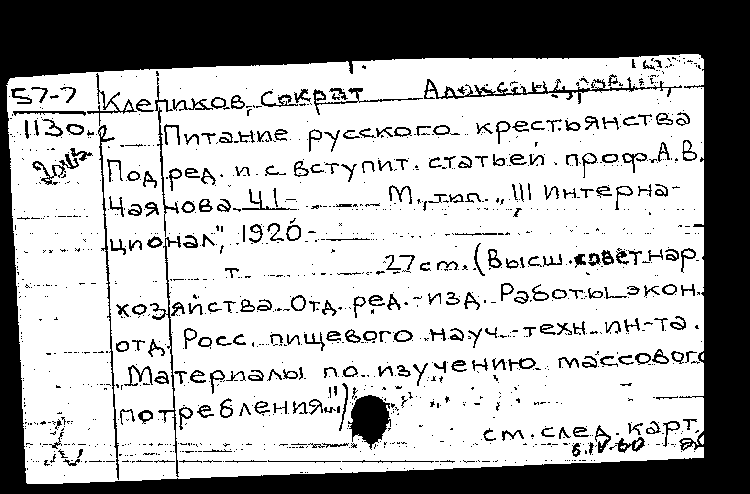 57-7 Клепиков, Сократ Александрович,
1130-2 Питание русского крестьянства
Под ред. и с вступит. статьей проф. А.В.
Чаянова. Ч.I- М., тип. „III Интерна-
ционал", 1920-
т. 27 см. (Высш. совет нар.
хозяйства. Отд. ред.-изд. Работы экон.
отд. Росс. пищевого науч.-техн. ин-та.
„Материалы по изучению массового
потребления")
см. след. карт.
6.IV-60